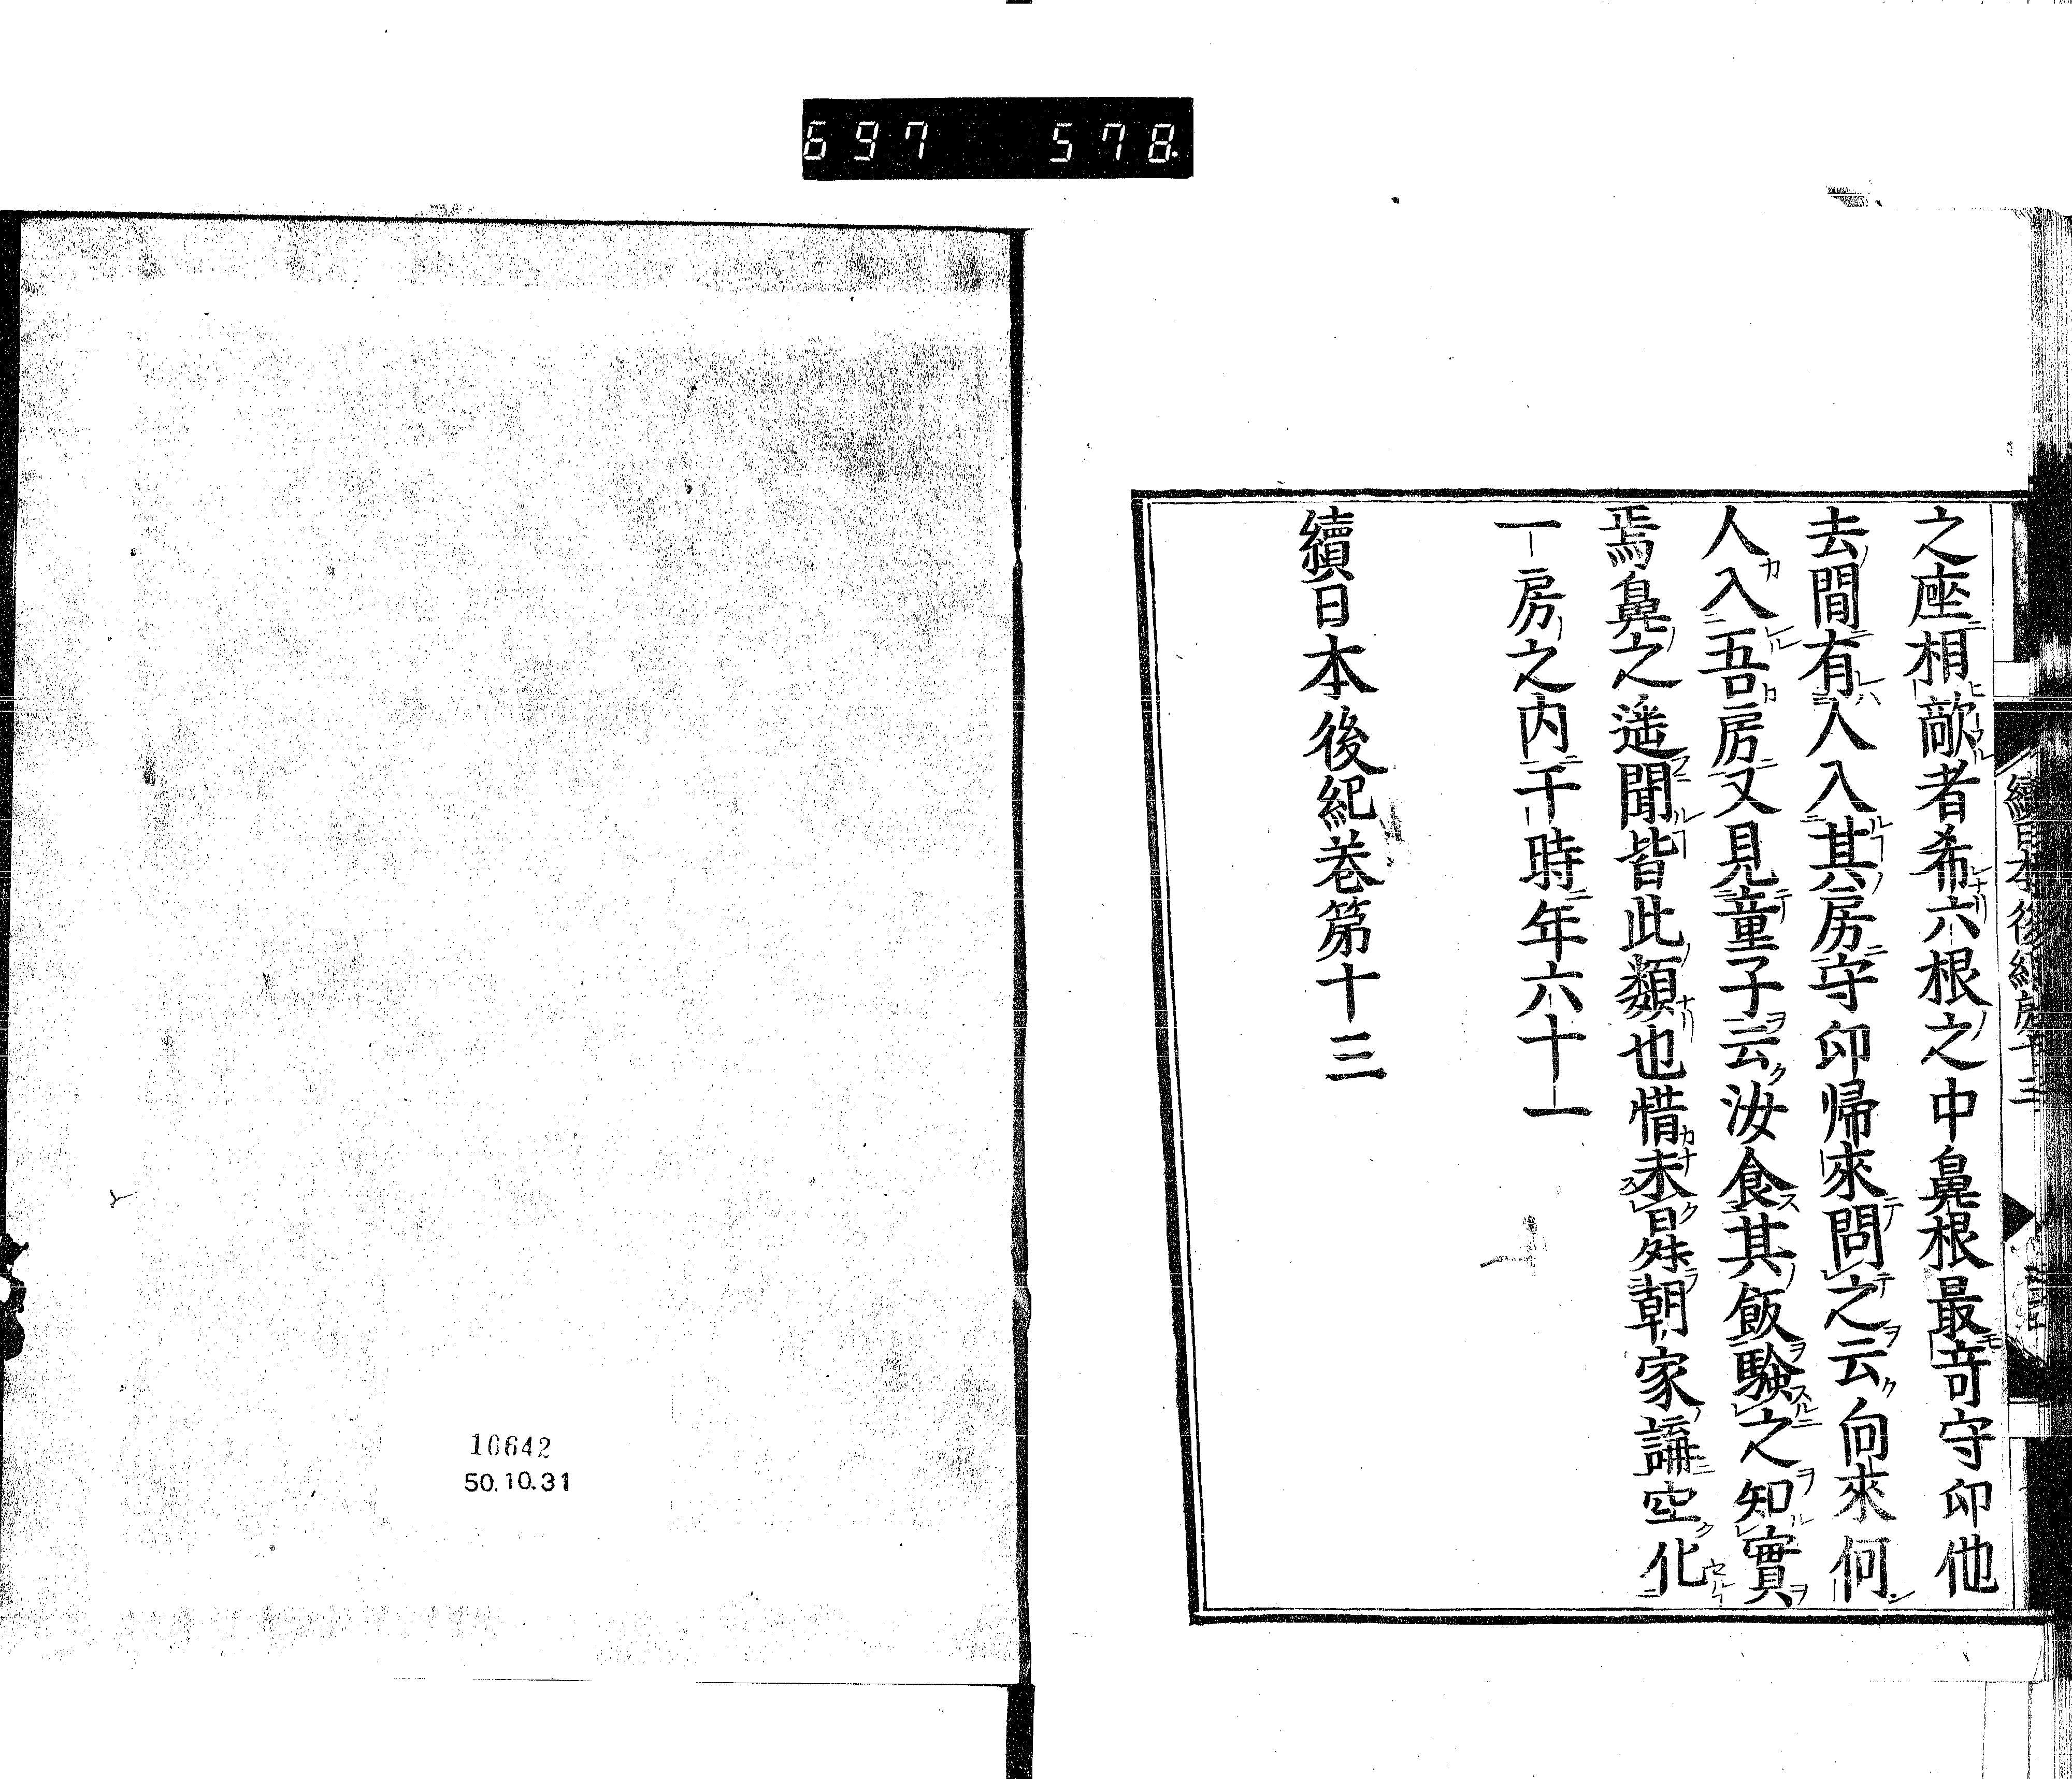 697 578.
續日本後紀卷十三
之座相敵者希六根之中鼻根最竒守印他
去間有人入其房守印帰來問之云向來何
人入吾房又見童子云汝食其飯驗之知實
焉鼻之遥聞皆此類也惜未曻朝家講空化
一房之内于時年六十一
續日本後紀卷第十三
10642
50.10.31